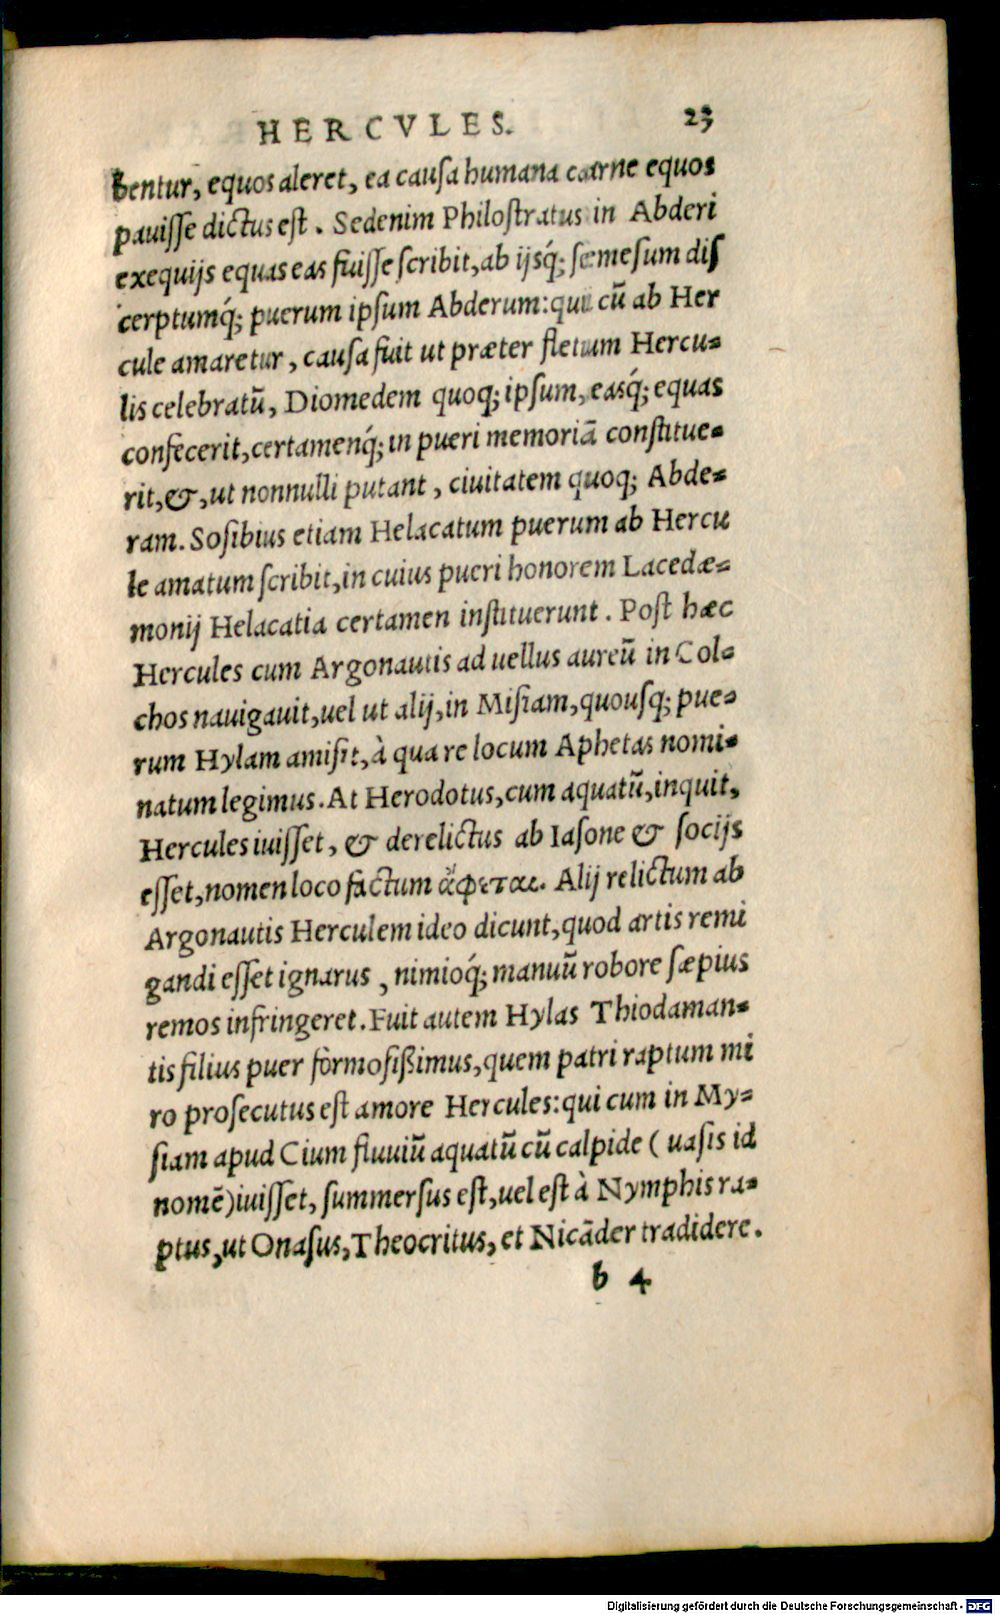 HERCVLES. 23
bentur, equos aleret, ea causa humana carne equos
pauisse dictus est. Sedenim Philostratus in Abderi
exequijs equas eas fuisse scribit, ab ijsq́; semesum dis
cerptumq́; puerum ipsum Abderum: qui cũ ab Her
cule amaretur, causa fuit ut præter fletum Hercu-
lis celebratũ, Diomedem quoq; ipsum, easq́; equas
confecerit, certamenq́; in pueri memoriã constitue-
rit, &, ut nonnulli putant, ciuitatem quoq; Abde-
ram. Sosibius etiam Helacatum puerum ab Hercu
le amatum scribit, in cuius pueri honorem Lacedæ-
monij Helacatia certamen instituerunt. Post hæc
Hercules cum Argonautis ad uellus aureũ in Col-
chos nauigauit, uel ut alij, in Misiam, quousq; pue-
rum Hylam amisit, à qua re locum Aphetas nomi-
natum legimus. At Herodotus, cum aquatũ, inquit,
Hercules iuisset, & derelictus ab Iasone & socijs
esset, nomen loco factum ἄφεται. Alij relictum ab
Argonautis Herculem ideo dicunt, quod artis remi
gandi esset ignarus, nimioq́; manuũ robore sæpius
remos infringeret. Fuit autem Hylas Thiodaman-
tis filius puer formosißimus, quem patri raptum mi
ro prosecutus est amore Hercules: qui cum in My-
siam apud Cium fluuiũ aquatũ cũ calpide (uasis id
nomẽ) iuisset, summersus est, uel est à Nymphis ra-
ptus, ut Onasus, Theocritus, et Nicãder tradidere.
b 4
Digitalisierung gefördert durch die Deutsche Forschungsgemeinschaft - DFG